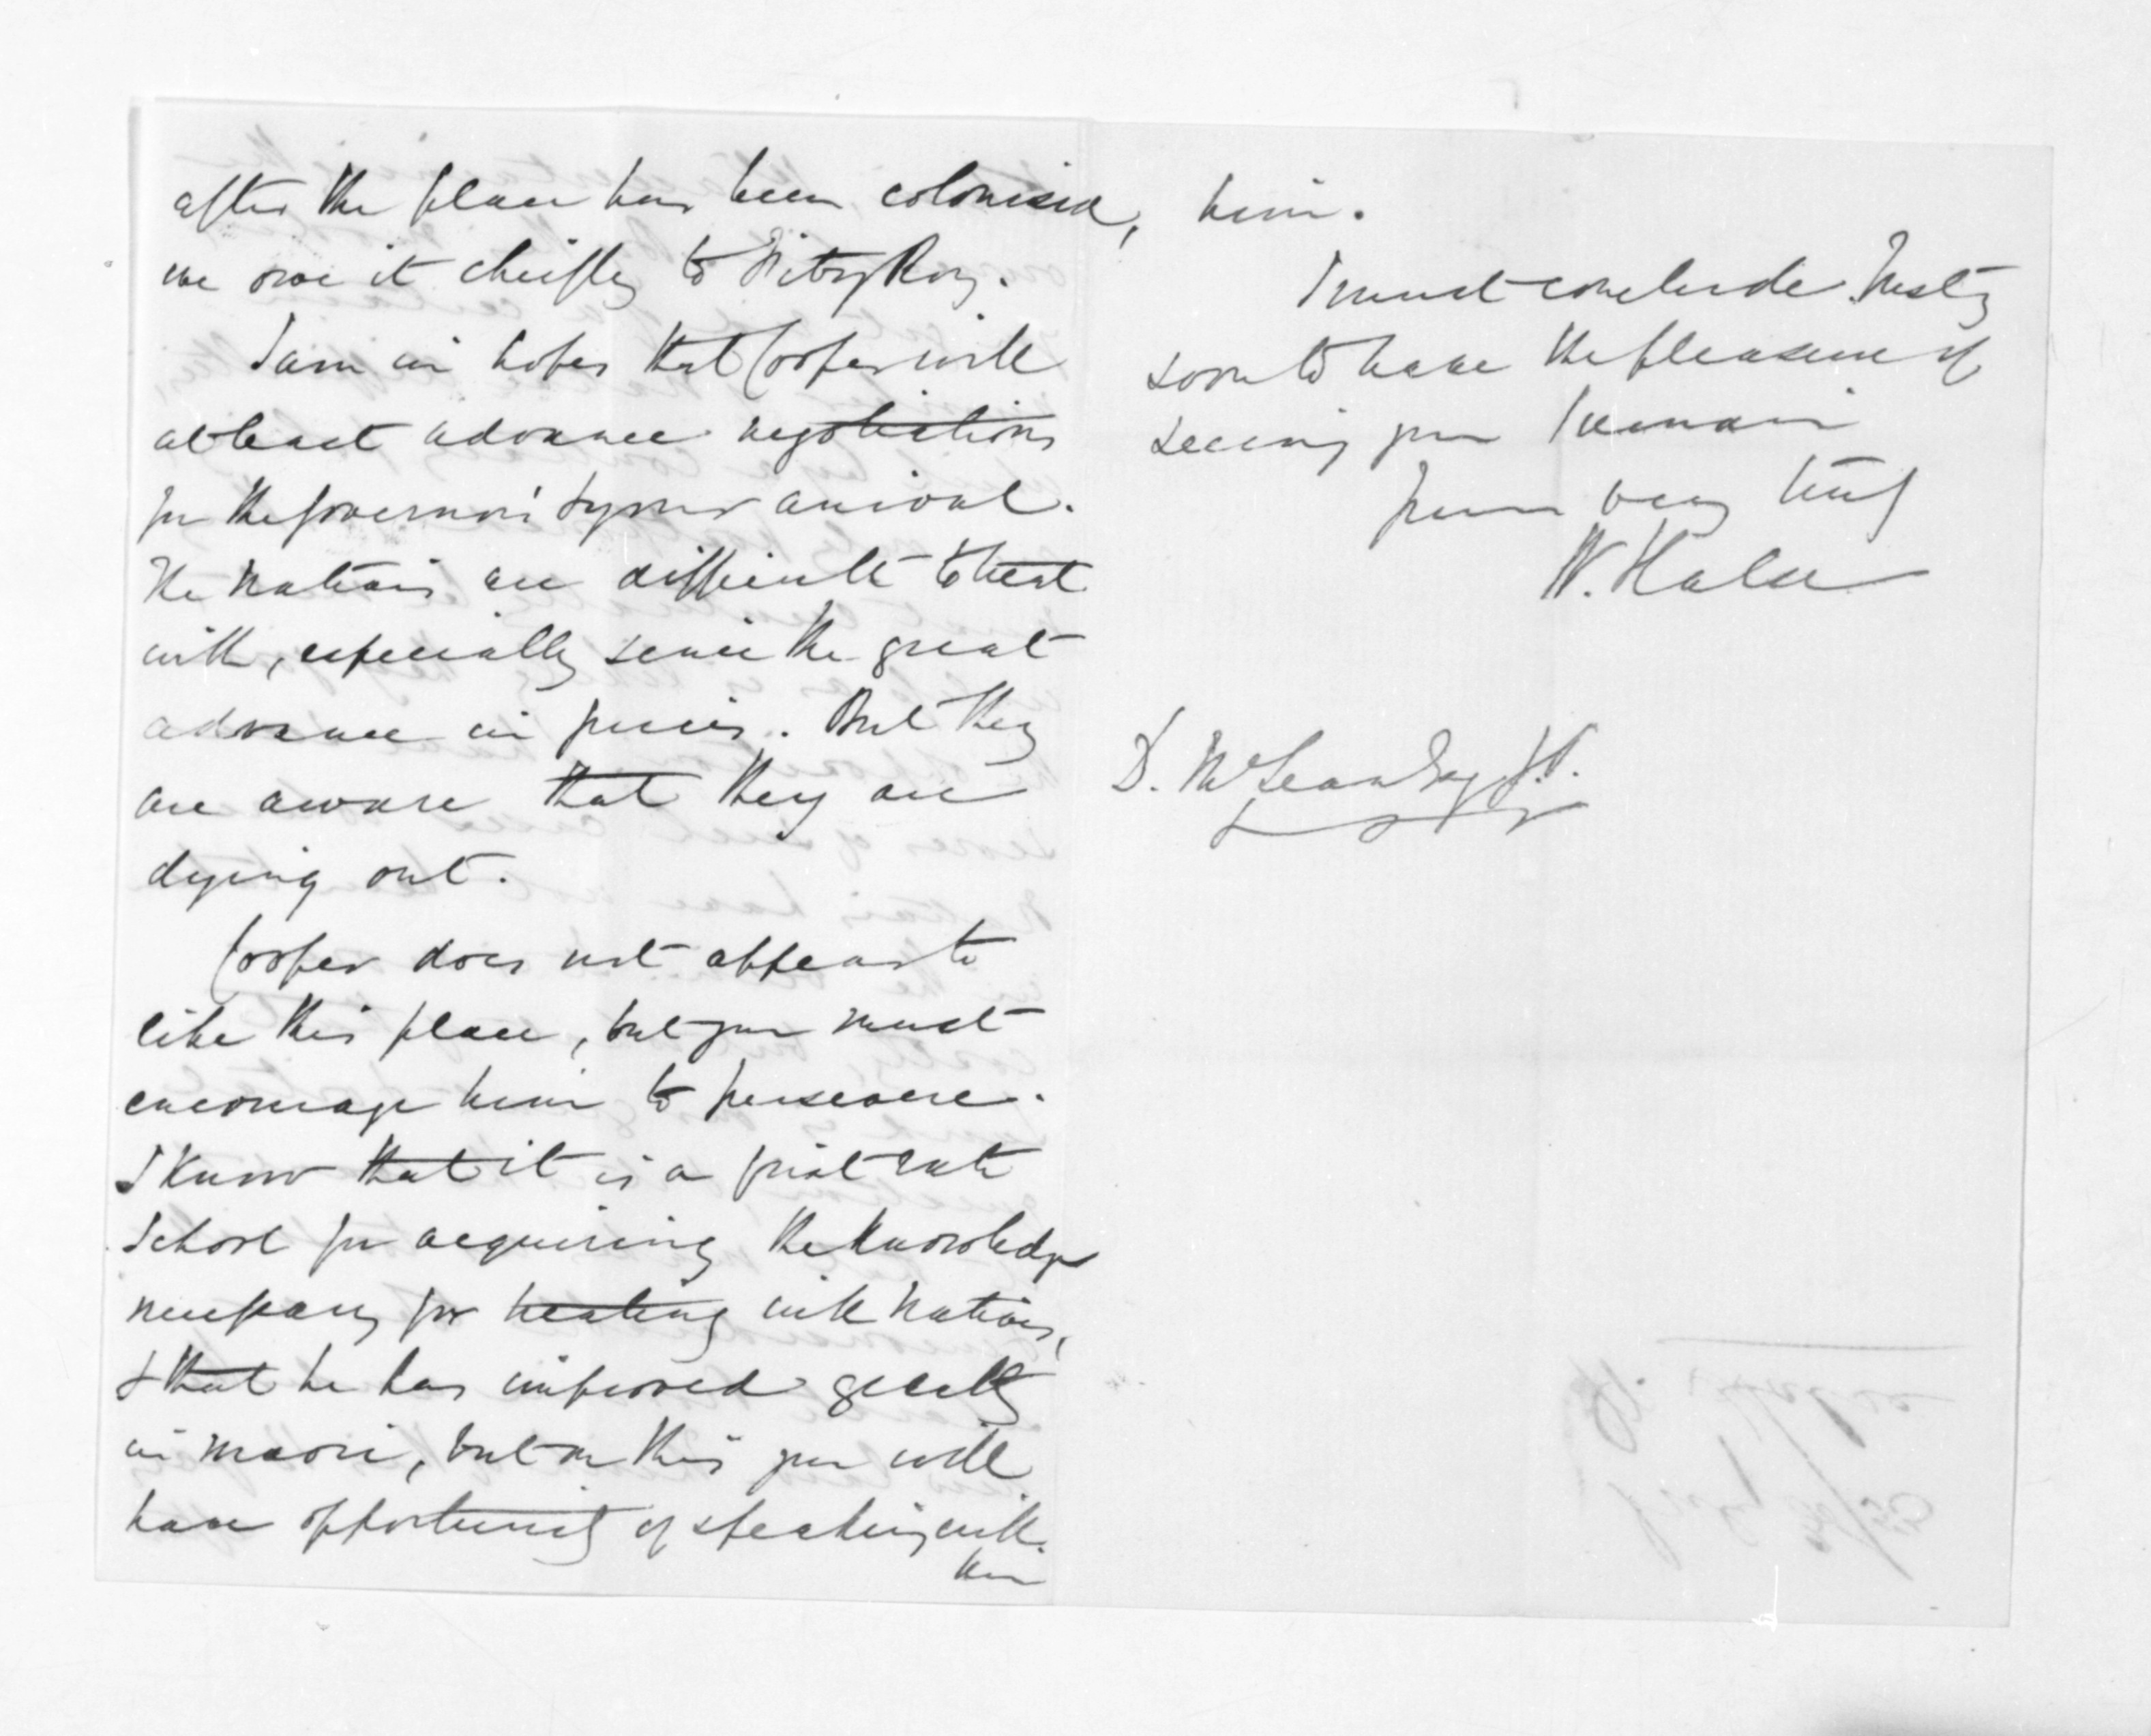 after the place has been colonised,
we owe it cheifly to FitzRoy.
I am in hopes that Cooper will
at least advance negotiations
for the Governor's & your arrival.
The Natives are difficult to treat
with, especially since the great
advance in prices. But they
are aware that they are
dying out.
Cooper does not appear to
like this place, but you must
encourage him to persevere.
I know that it is a first rate
School for acquiring the knowledge
necessary for treating with Natives,
& that he has improved greatly
in maori, but on this you will
have opportunity of speaking with
him
him.
I must conclude. Trustg
soon to have the pleasure of
seeing you I remain
Yours very truly
W. Halse
D. McLean Esq J.P.